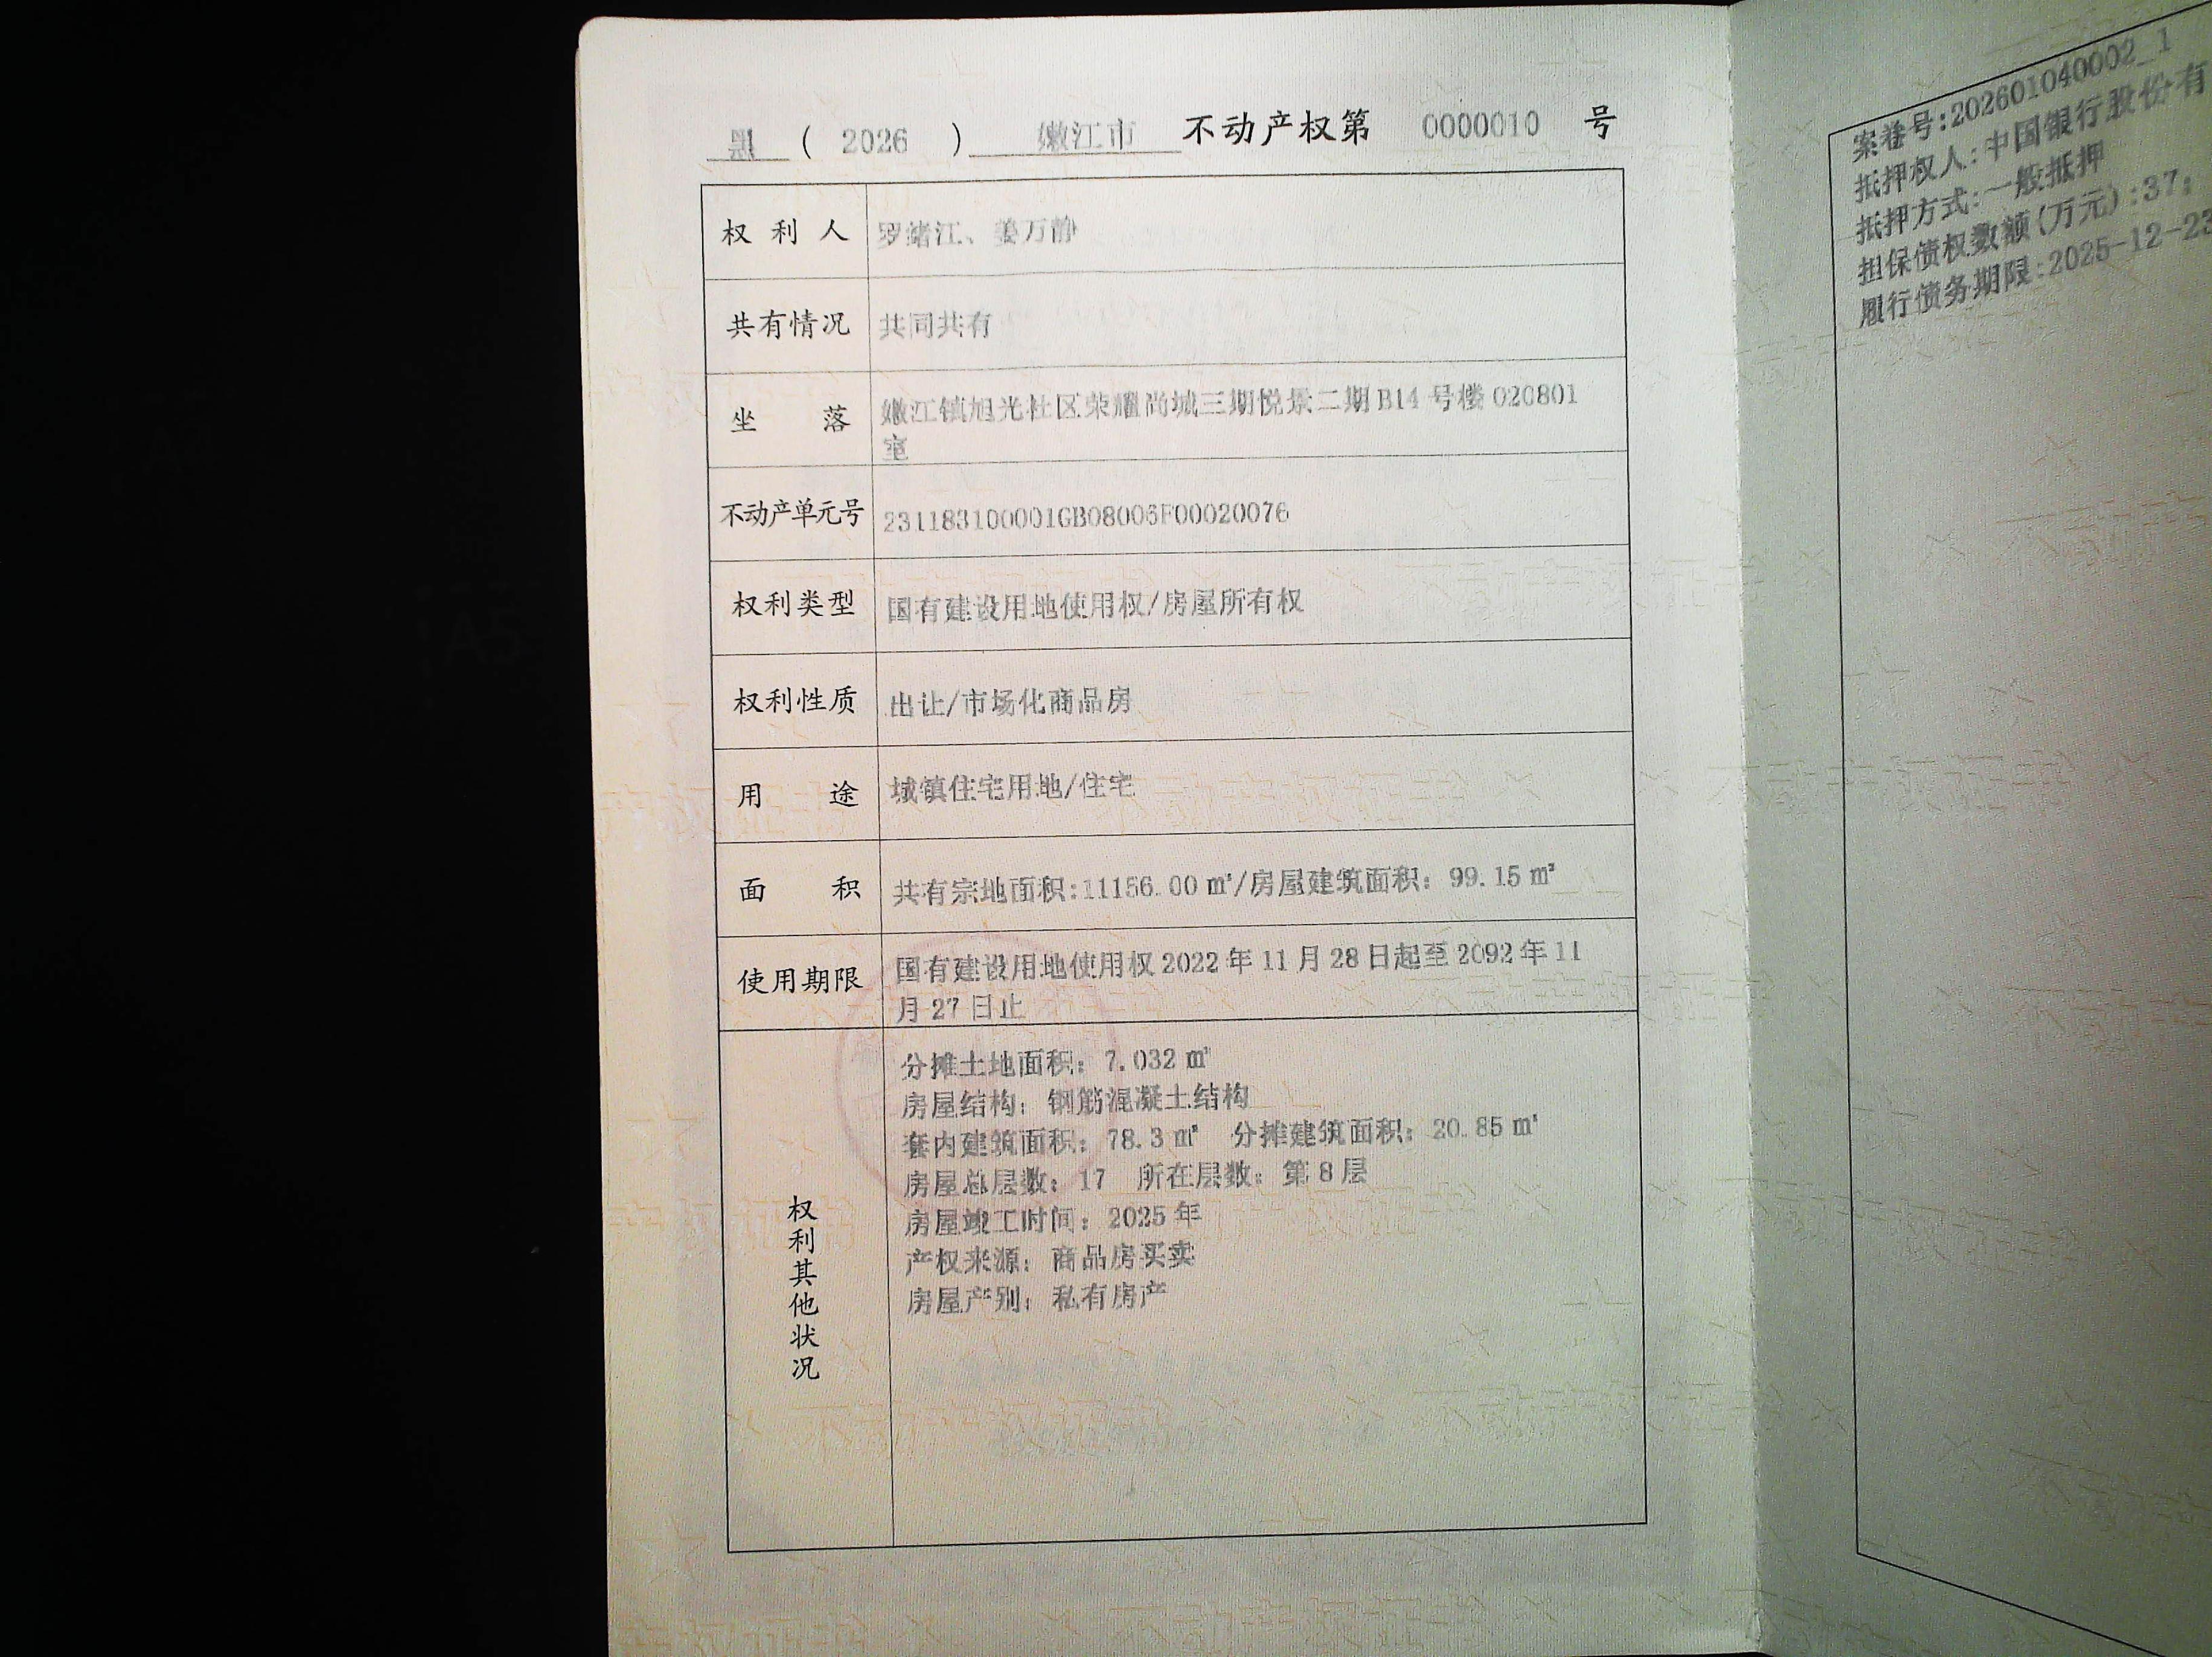 黑 ( 2026 ) 嫩江市 不动产权第 0000010 号
权利人 罗绪江、姜万静
共有情况 共同共有
坐落 嫩江镇旭光社区荣耀尚城三期悦景二期B14号楼020801
室
不动产单元号 231183100001GB08006F00020076
权利类型 国有建设用地使用权/房屋所有权
权利性质 出让/市场化商品房
用途 城镇住宅用地/住宅
面积 共有宗地面积:11156.00㎡/房屋建筑面积：99.15㎡
使用期限 国有建设用地使用权2022年11月28日起至2092年11
月27日止
权利其他状况
分摊土地面积：7.032㎡
房屋结构：钢筋混凝土结构
套内建筑面积：78.3㎡ 分摊建筑面积：20.85㎡
房屋总层数：17 所在层数：第8层
房屋竣工时间：2025年
产权来源：商品房买卖
房屋产别：私有房产
案卷号:202601040002_1
抵押权人:中国银行股份有
抵押方式:一般抵押
担保债权数额(万元):37;
履行债务期限:2025-12-23